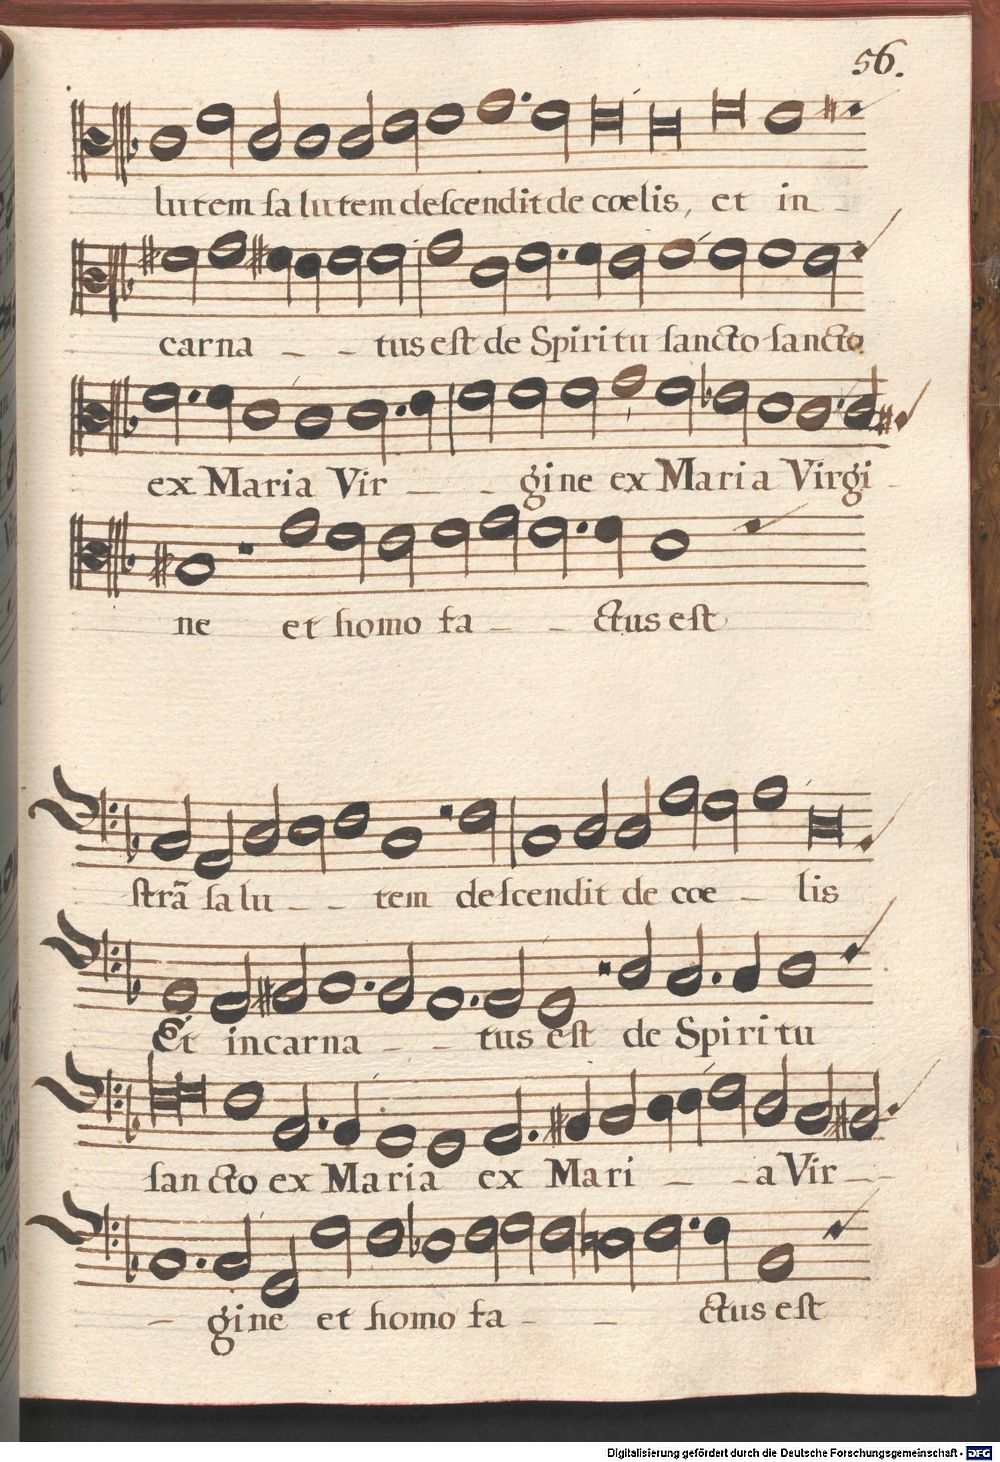 56.
lutem salutem descendit de coelis, et in -
carna - - tus est de Spiritu sancto sancto
ex Maria Vir - - gine ex Maria Virgi -
ne et homo fa - - ctus est
strã salu - - tem descendit de coe - lis
Et incarna - - tus est de Spiritu
sancto ex Maria ex Mari - - a Vir - -
- gine et homo fa - - ctus est
Digitalisierung gefördert durch die Deutsche Forschungsgemeinschaft - DFG